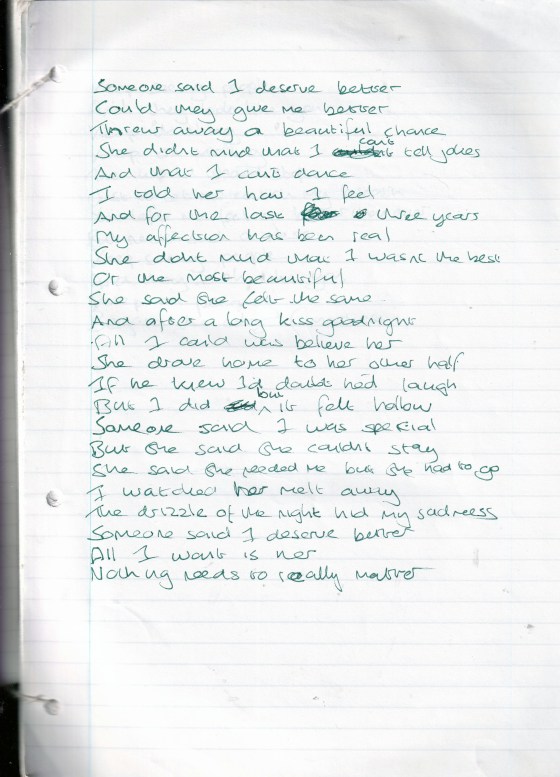 Someone said I deserve better
Could they give me better
Threw away a beautiful chance
She didnt mind that I cant tell jokes
And that I cant dance
I told her how I feel
And for the last three years
My affection has been real
She didnt mind that I wasnt the best
Or the most beautiful
She said she felt the same
And after a long kiss goodnight
All I could was believe her
She drove home to her other half
If he knew I'd doubt he'd laugh
But I did but it felt hollow
Someone said I was special
But she said she couldnt stay
She said she needed me but she had to go
I watched her melt away
The drizzle of the night hid my sadness
Someone said I deserve better
All I want is her
Nothing needs to really matter